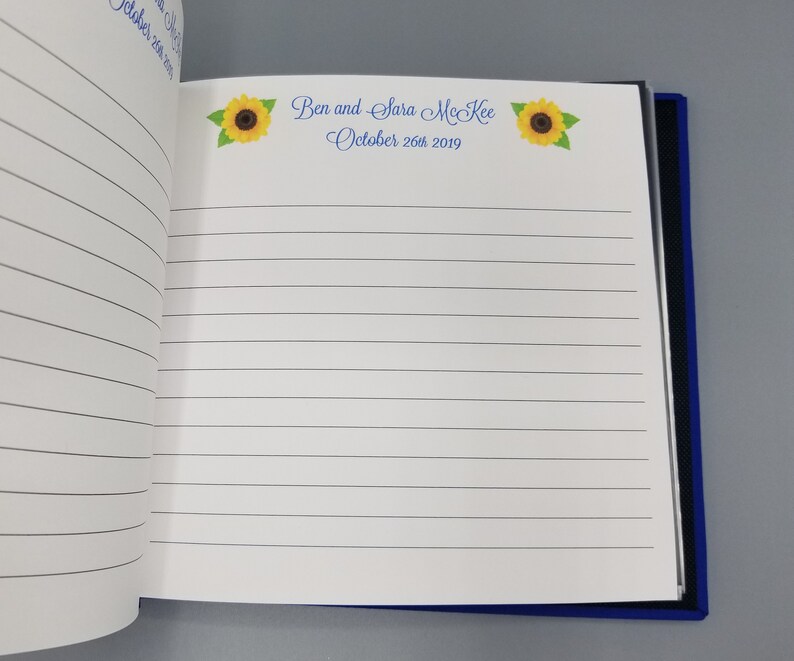 October 26th 2019
Ben and Sara McKee
October 26th 2019